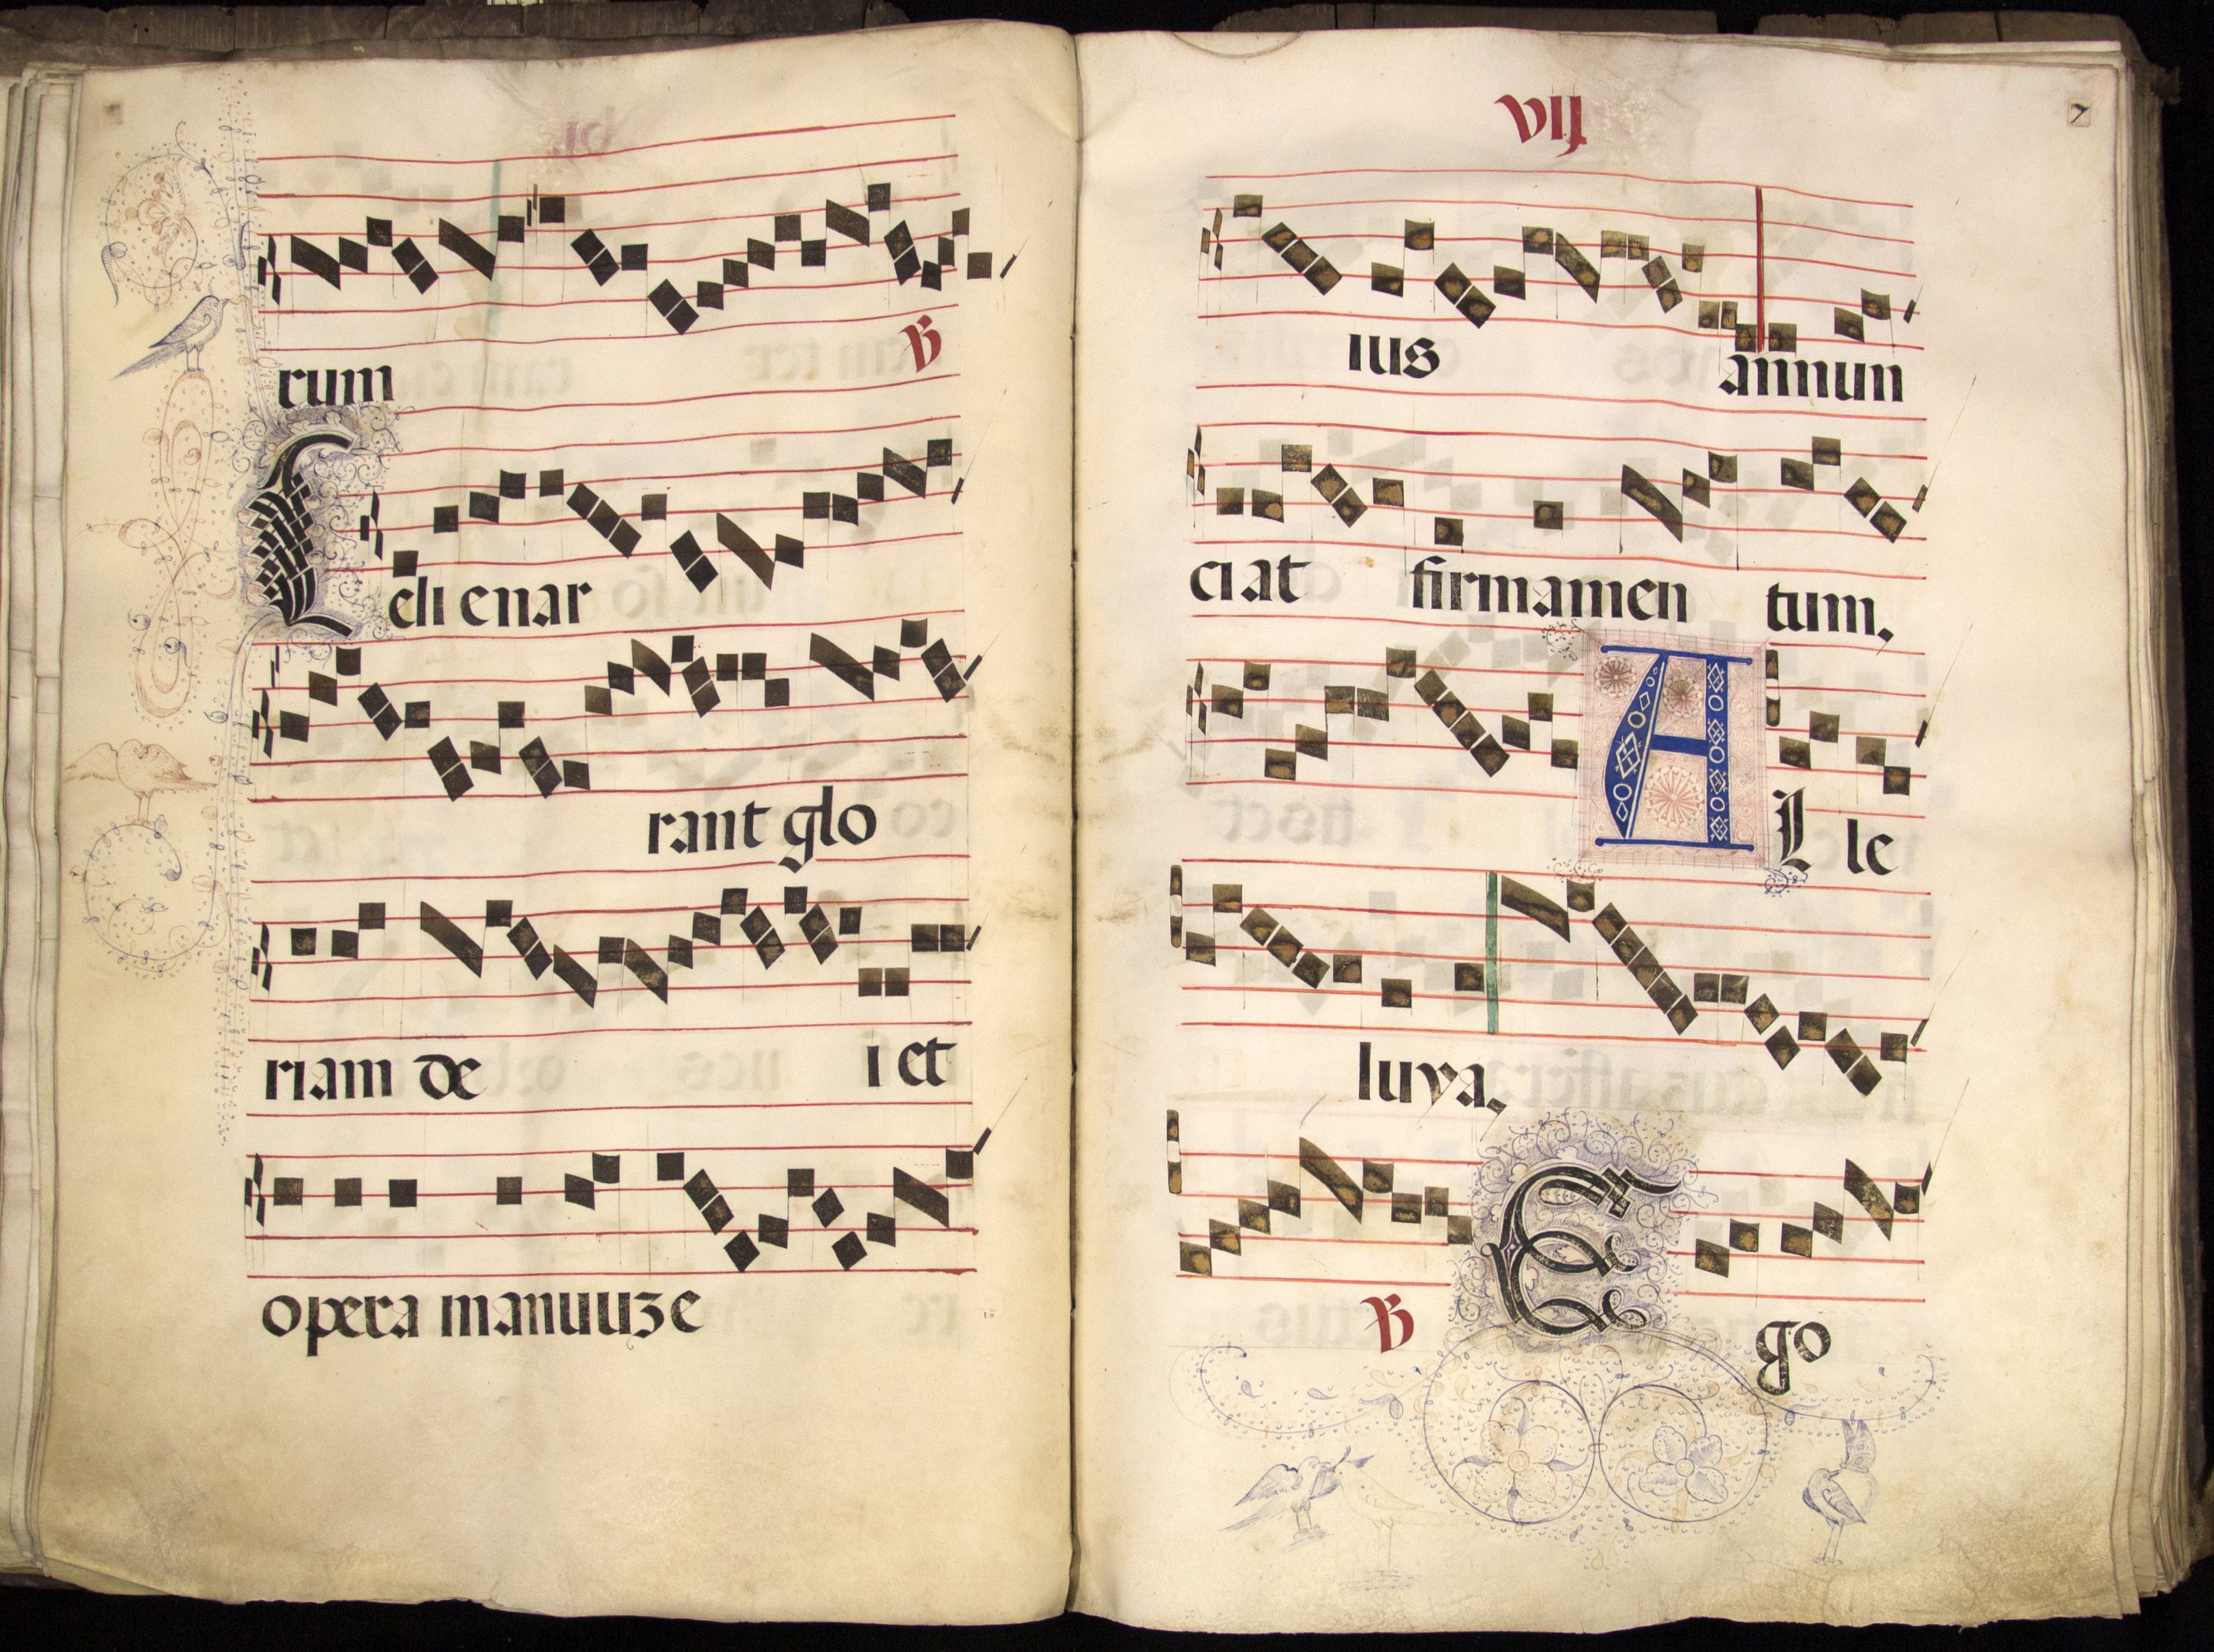 rum ℟
Celi enar
rant glo
riam de i et
opera manuuʒ e
VIJ
7
ius annun
ciat firmamen tum.
AL le
luya.
℟ E go